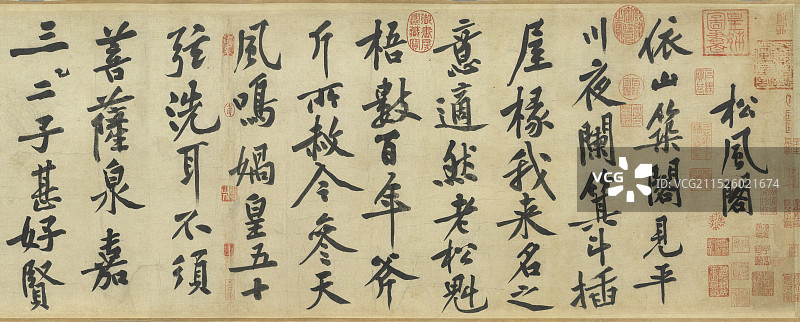 松風閣
依山築閣見平
川夜闌箕斗插
屋椽我来名之
意適然老松魁
梧數百年斧
斤所赦今參天
風鳴媧皇五十
弦洗耳不須
菩薩泉嘉
三二子甚好賢
ID: VCG211526021674